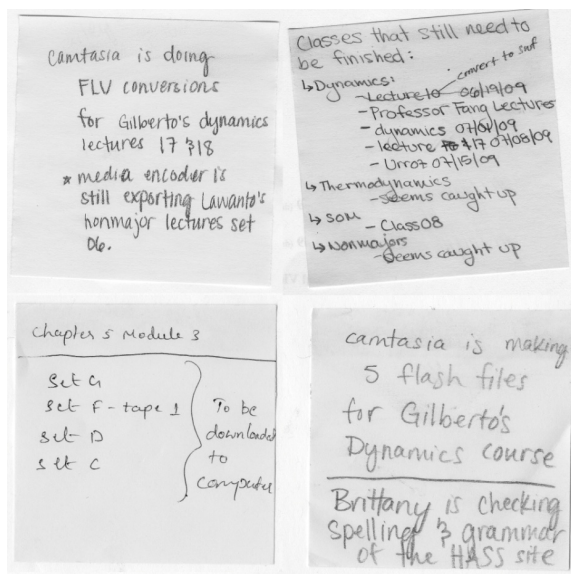 Camtasia is doing
FLV conversions
for Gilberto's dynamics
lectures 17 & 18
* media encoder is
still exporting Lawanto's
nonmajor lectures set
06.
Classes that still need to
be finished:
↳ Dynamics: convert to swf
- Lecture 10 06/19/09
- Professor Fang Lectures
- dynamics 07/01/09
- lecture 17 07/08/09
- Urroz 07/15/09
↳ Thermodynamics
- Seems caught up
↳ SOM
- Class 08
↳ Nonmajors
- Seems caught up
Chapter 5 Module 3
Set G
Set F - tape 1
Set D
Set C
To be
downloaded
to
computer
camtasia is making
5 flash files
for Gilberto's
Dynamics course
Brittany is checking
spelling & grammar
of the HASS site